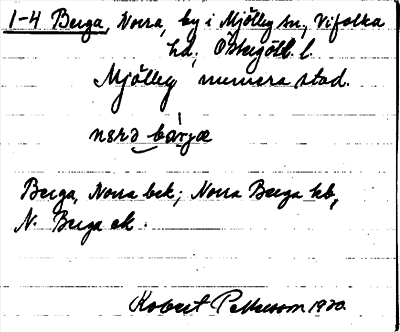 1-4 Berga, Norra, by i Mjölby sn, Vifolka
hd, Östergötl. l.
Mjölby numera stad.
nɷrə bárjæ
Berga, Norra bek; Norra Berga kb,
N. Berga ek.
Robert Pettersson 1920.